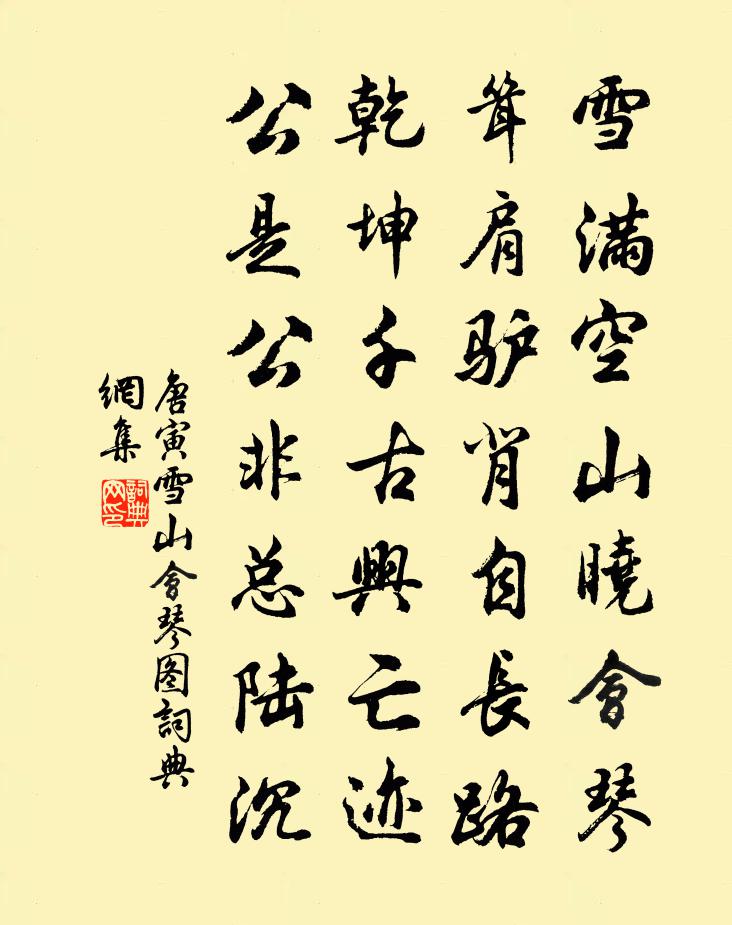 雪滿空山曉會琴
耸肩驴背自長路
乾坤千古興亡迹
公是公非总陆沉
唐寅雪山會琴图詞典
網集
詞典
网印